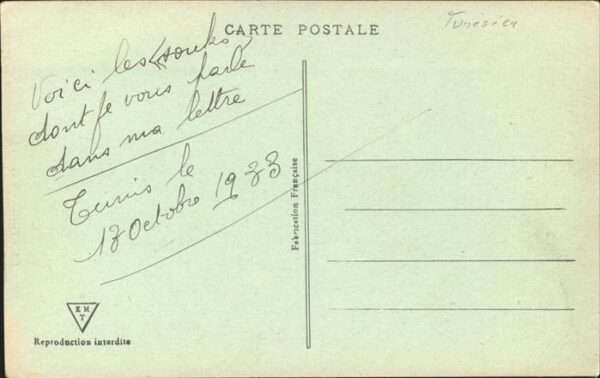 CARTE POSTALE
Tunisien
Voici les «souks»
dont je vous parle
dans ma lettre
Tunis le
17 Octobre 1933
Fabrication Française
EMT
Reproduction interdite